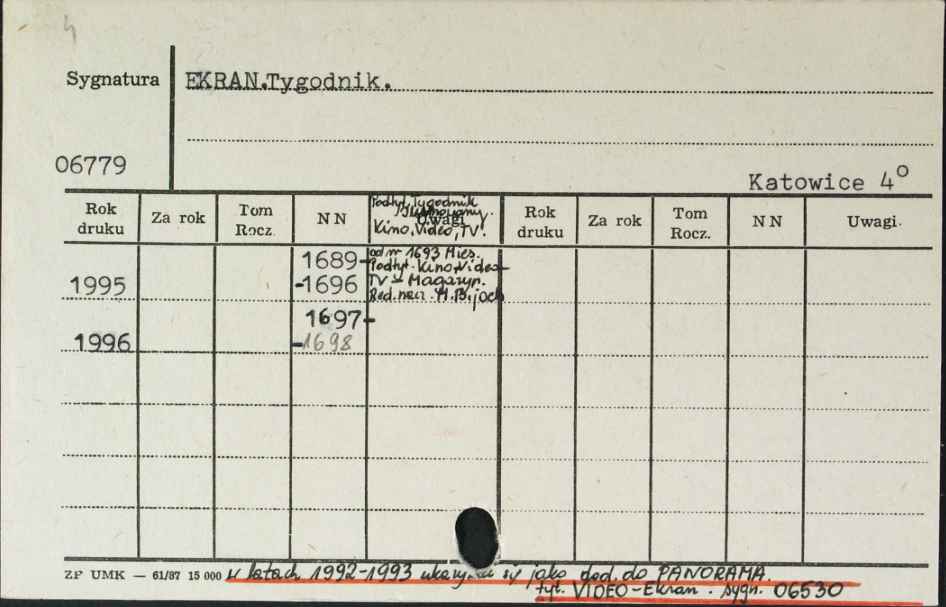 4
Sygnatura EKRAN.Tygodnik.
06779
Katowice 4°
Rok druku Za rok Tom Rocz. NN Uwagi Rok druku Za rok Tom Rocz. NN Uwagi.
Podtyt. Tygodnik
Ilustrowany.
Kino, Video, TV.
1689- od nr 1693 Mies.
Podtyt. Kino Video
1995 -1696 TV Magazyn.
Red. nacz. M.B.
1697-
1996 -1698
ZP UMK — 61/87 15 000 w latach 1992-1993 ukazywał się jako dod. do PANORAMA.
tyt. VIDEO-Ekran. sygn. 06530